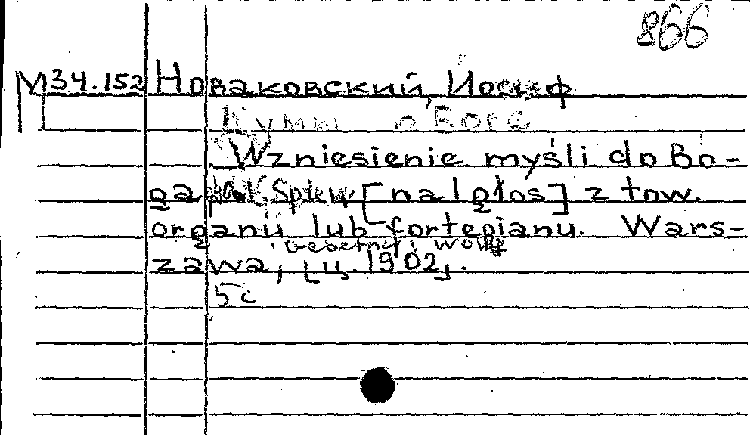 866
М34.152 Новаковский, Иосиф
Думы о Боге
Wzniesienie myśli do Bo-
ga. Śpiew [na 1 głos] z tow.
organu lub fortepianu. Wars-
Gebethner i Wolff
zawa, [ц. 1902].
5 с